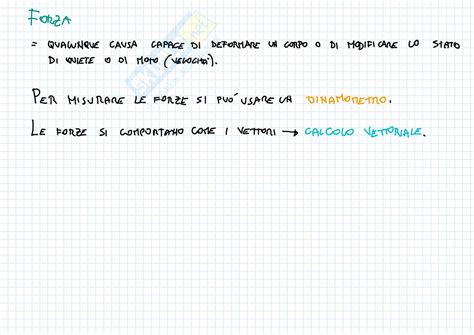 FORZA
= QUALUNQUE CAUSA CAPACE DI DEFORMARE UN CORPO O DI MODIFICARE LO STATO
DI QUIETE O DI MOTO (VELOCITÀ).
PER MISURARE LE FORZE SI PUÒ USARE UN DINAMOMETRO.
LE FORZE SI COMPORTANO COME I VETTORI → CALCOLO VETTORIALE.